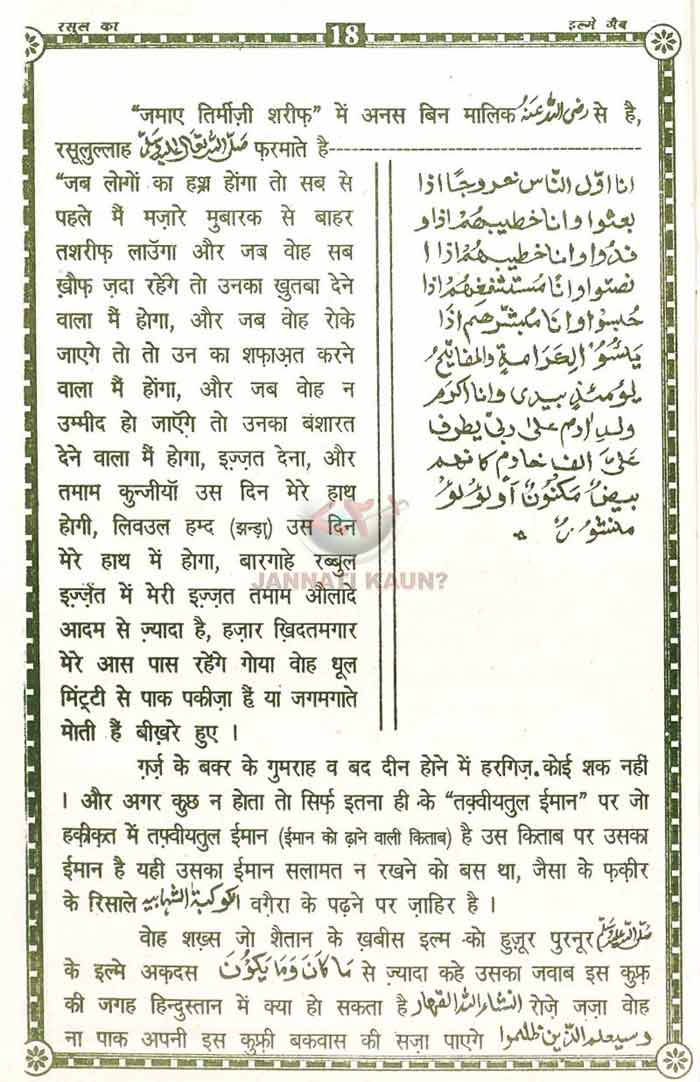 रसूल का
18
इल्मे ग़ैब
"जमाए तिर्मीज़ी शरीफ़" में अनस बिन मालिक رضی اللہ عنہ से है,
रसूलुल्लाह صلی اللہ تعالیٰ علیہ وسلم फ़रमाते है
"जब लोगों का हश्र होंगा तो सब से
पहले मैं मज़ारे मुबारक से बाहर
तशरीफ़ लाउँगा और जब वोह सब
ख़ौफ़ ज़दा रहेंगे तो उनका ख़ुतबा देने
वाला मैं होगा, और जब वोह रोके
जाएगे तो तो उन का शफ़ाअ़त करने
वाला मैं होंगा, और जब वोह न
उम्मीद हो जाएँगे तो उनका बंशारत
देने वाला मैं होगा, इज़्ज़त देना, और
तमाम कुन्जीयॉ उस दिन मेरे हाथ
होगी, लिवउल हम्द (झन्ड़ा) उस दिन
मेरे हाथ में होगा, बारगाहे रब्बुल
इज़्ज़त में मेरी इज़्ज़त तमाम औलादे
आदम से ज़्यादा है, हज़ार ख़िदतमगार
मेरे आस पास रहेंगे गोया वोह धूल
मिंट्टी से पाक पकीज़ा हैं यां जगमगाते
मोती हैं बीख़रे हुए ।
انا اوّل الناس خروجًا اذا
بعثوا وانا خطيبهم اذا و
فدوا وانا خطيبهم اذا ا
نصتوا وانا مستشفعهم اذا
حبسوا وانا مبشرهم اذا
يئسوا الكرامة والمفاتيح
يومئذ بيدى وانا اكرم
ولد ادم على ربى يطوف
على الف خادم كانهم
بيض مكنون او لؤلؤ
منثور
JANNATI KAUN?
ग़र्ज़ के बक्र के गुमराह व बद दीन होने में हरगिज़. कोई शक नहीं
। और अगर कुछ न होता तो सिर्फ़ इतना ही के "तक़्वीयतुल ईमान" पर जो
हक़ीक़त में तफ़्वीयतुल ईमान (ईमान को ढ़ाने वाली किताब) है उस किताब पर उसका
ईमान है यही उसका ईमान सलामत न रखने को बस था, जैसा के फ़क़ीर
के रिसाले کوکبۃ الشہابیہ वग़ैरा के पढ़ने पर ज़ाहिर है ।
वोह शख़्स जो शैतान के ख़बीस इल्म को हुज़ूर पुरनूर صلی اللہ علیہ وسلم
के इल्मे अक़दस مَا كَانَ وَمَا يَكُوْنُ से ज़्यादा कहे उसका जवाब इस कुफ़्र
की जगह हिन्दुस्तान में क्या हो सकता है انشاء اللہ القہار रोज़े जज़ा वोह
ना पाक अपनी इस कुफ़्री बकवास की सज़ा पाएगे وسيعلم الذين ظلموا